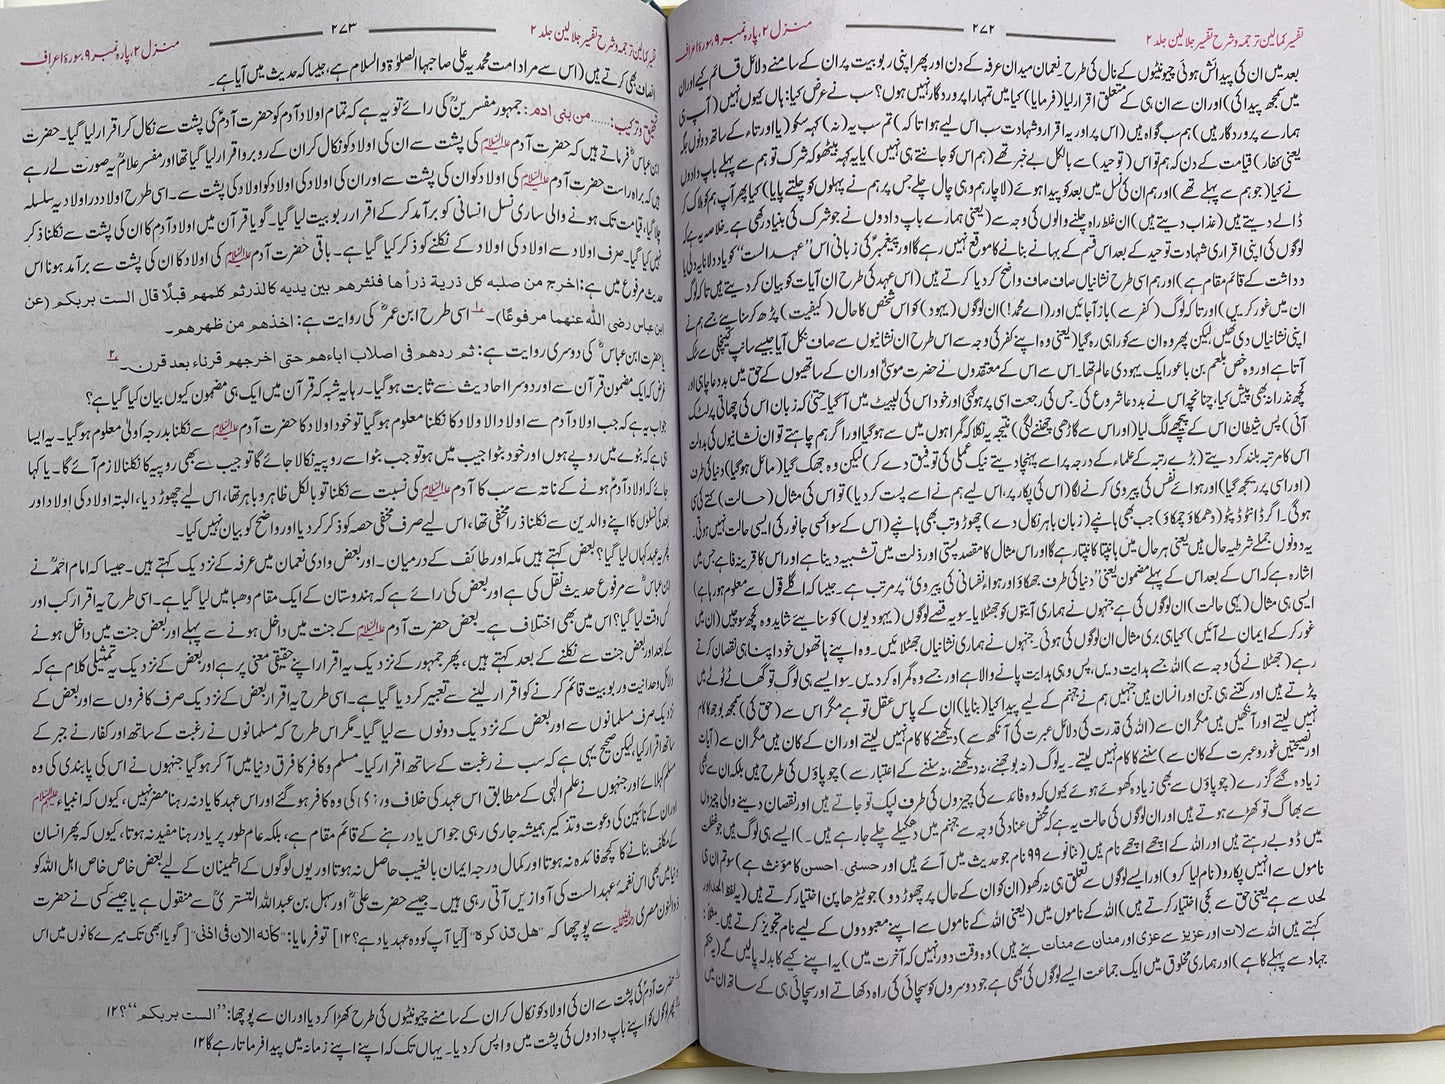 تفسیر کمالین ترجمہ و شرح تفسیر جلالین جلد ۲
۲۷۲
منزل ۲، پارہ نمبر ۹، سورۂ اعراف
بعد میں ان کی پیدائش ہوئی چیونٹیوں کے نال کی طرح۔ نعمان میدان عرفہ کے دن اور پھر اپنی ربوبیت پر ان کے سامنے دلائل قائم کیے اور ان
میں کچھ پیدا کی) اور ان سے ان ہی کے متعلق اقرار لیا (فرمایا) کیا میں تمہارا پروردگار نہیں ہوں؟ سب نے عرض کیا: ہاں کیوں نہیں (آپ ہی
ہمارے پروردگار ہیں) ہم سب گواہ ہیں (اس پر اور یہ اقرار و شہادت سب اس لیے ہوا تا کہ) تم سب یہ (نہ) کہہ سکو (یا اور تاء کے ساتھ دونوں جگہ
یعنی کفار) قیامت کے دن کہ ہم تو اس (توحید) سے بالکل بے خبر تھے (ہم اس کو جانتے ہی نہیں) یا یہ کہہ بیٹھو کہ شرک تو ہم سے پہلے باپ دادوں
نے کیا (جو ہم سے پہلے تھے) اور ہم ان کی نسل میں بعد کو پیدا ہوئے (لاچار ہم وہی چال چلے جس پر ہم نے پہلوں کو چلتے پایا) کیا پھر آپ ہم کو ہلاک کر
ڈالے دیتے ہیں (عذاب دیتے ہیں) ان غلط راہ چلنے والوں کی وجہ سے (یعنی ہمارے باپ دادوں نے جو شرک کی بنیاد رکھی ہے خلاصہ یہ ہے کہ
لوگوں کی اپنی اقراری شہادت توحید کے بعد اس قسم کے بہانے بنانے کا موقع نہیں رہے گا اور پیغمبرؐ کی زبانی اس ”عہد الست“ کو یاد دلانا یہ دلی یا
دداشت کے قائم مقام ہے) اور ہم اسی طرح نشانیاں صاف صاف واضح کر دیا کرتے ہیں (اس عہد کی طرح ان آیات کو بیان کر دیتے ہیں تا کہ لوگ
ان میں غور کریں) اور تا کہ لوگ (کفر سے) باز آ جائیں اور (اے محمد!) ان لوگوں (یہود) کو اس شخص کا حال (کیفیت) پڑھ کر سنایئے جسے ہم نے
اپنی نشانیاں دی تھیں، لیکن پھر وہ ان سے کورا ہی رہ گیا (یعنی وہ اپنے کفر کی وجہ سے اس طرح ان نشانیوں سے صاف نکل آیا جیسے سانپ کینچلی سے نکل
آتا ہے اور وہ شخص بلعم بن باعور ایک یہودی عالم تھا۔ اس سے اس کے معتقدوں نے حضرت موسیٰؑ اور ان کے ساتھیوں کے حق میں بددعا چاہی اور
کچھ نذرانہ بھی پیش کیا، چنانچہ اس نے بددعا شروع کی۔ جس کی رجعت اسی پر ہو گئی اور خود اس کی لپیٹ میں آ گیا۔ حتیٰ کہ زبان اس کی چھاتی پر لٹک
آئی) پس شیطان اس کے پیچھے لگ لیا (اور اس سے گاڑھی چھننے لگی) نتیجہ یہ نکلا کہ گمراہوں میں سے ہو گیا اور اگر ہم چاہتے تو ان نشانیوں کی بدولت
اس کا مرتبہ بلند کر دیتے (بڑے رتبہ کے علماء کے درجہ پر اسے پہنچا دیتے نیک عملی کی توفیق دے کر) لیکن وہ جھک گیا (مائل ہو گیا) دنیا کی طرف
(اور اسی پر ریجھ گیا) اور ہوائے نفس کی پیروی کرنے لگا (اس کی پکار پر، اس لیے ہم نے اسے پست کر دیا) تو اس کی مثال (حالت) کتے کی سی
ہو گئی۔ اگر ڈانٹو ڈپٹو (دھمکاؤ چمکاؤ) جب بھی ہانپے (زبان باہر نکال دے) چھوڑو تب بھی ہانپے (اس کے سوا کسی جانور کی ایسی حالت نہیں ہوتی۔
یہ دونوں جملے شرطیہ حال ہیں یعنی ہر حال میں ہانپتا کانپتا رہے گا اور اس مثال کا مقصد پستی اور ذلت میں تشبیہ دینا ہے اور اس کا قرینہ فا ہے جس میں
اشارہ ہے کہ اس کے بعد اس کے پہلے مضمون یعنی ”دنیا کی طرف جھکاؤ اور ہواء نفسانی کی پیروی“ پر مرتب ہے۔ جیسا کہ اگلے قول سے معلوم ہو رہا ہے)
ایسی ہی مثال (یہی حالت) ان لوگوں کی ہے جنہوں نے ہماری آیتوں کو جھٹلایا۔ سو یہ قصے لوگوں (یہودیوں) کو سنایئے شاید وہ کچھ سوچیں (ان میں
غور کر کے ایمان لے آئیں) کیا ہی بری مثال ان لوگوں کی ہوئی۔ جنہوں نے ہماری نشانیاں جھٹلائیں۔ وہ اپنے ہاتھوں خود اپنا ہی نقصان کرتے
رہے (جھٹلانے کی وجہ سے) اللہ جسے ہدایت دیں، پس وہی ہدایت پانے والا ہے اور جسے وہ گمراہ کر دیں۔ سو ایسے ہی لوگ تو گھاٹے ٹوٹے میں
پڑتے ہیں اور کتنے ہی جن اور انسان ہیں جنہیں ہم نے جہنم کے لیے پیدا کیا (بنایا) ان کے پاس عقل تو ہے مگر اس سے (حق کی) سمجھ بوجھ کا کام
نہیں لیتے اور آنکھیں ہیں مگر ان سے (اللہ کی قدرت کی دلائل عبرت کی آنکھ سے) دیکھنے کا کام نہیں لیتے اور ان کے کان ہیں مگر ان سے (آیات
اور نصیحتیں غور و عبرت کے کان سے) سننے کا کام نہیں لیتے۔ یہ لوگ (نہ بوجھنے، نہ دیکھنے، نہ سننے کے اعتبار سے) چوپاؤں کی طرح ہیں بلکہ ان سے بھی
زیادہ گئے گزرے (چوپاؤں سے بھی زیادہ کھوئے ہوئے کیوں کہ وہ فائدے کی چیزوں کی طرف لپک تو جاتے ہیں اور نقصان دینے والی چیزوں
سے بھاگ تو کھڑے ہوتے ہیں اور ان لوگوں کی حالت یہ ہے کہ محض عناد کی وجہ سے جہنم میں دھکیلے چلے جا رہے ہیں۔) ایسے ہی لوگ ہیں جو غفلت
میں ڈوبے رہتے ہیں اور اللہ کے اچھے اچھے نام ہیں (ننانوے ۹۹ نام جو حدیث میں آئے ہیں اور حسنی۔ احسن کا مؤنث ہے) سو تم ان ہی
ناموں سے انہیں پکارو (نام لیا کرو) اور ایسے لوگوں سے تعلق ہی نہ رکھو (ان کو ان کے حال پر چھوڑ دو) جو ٹیڑھا پن اختیار کرتے ہیں (یہ لفظ الحد اور
لحد سے ہے یعنی حق سے کجی اختیار کرتے ہیں) اللہ کے ناموں میں (یعنی اللہ کے ناموں سے اپنے معبودوں کے لیے نام تجویز کرتے ہیں۔ مثلاً:
کہتے ہیں اللہ سے لات اور عزیز سے عزی اور منان سے منات بنے ہیں) وہ وقت دور نہیں کہ (آخرت میں) یہ اپنے کیے کا بدلہ پالیں گے (یہ حکم
جہاد سے پہلے کا ہے) اور ہماری مخلوق میں ایک جماعت ایسے لوگوں کی بھی ہے جو دوسروں کو سچائی کی راہ دکھاتے اور سچائی ہی کے ساتھ ان میں
تفسیر کمالین ترجمہ و شرح تفسیر جلالین جلد ۲
۲۷۳
منزل ۲، پارہ نمبر ۹، سورۂ اعراف
انصاف بھی کرتے ہیں (اس سے مراد امت محمدیہ علی صاحبہا الصلوٰۃ والسلام ہے، جیسا کہ حدیث میں آیا ہے۔
تحقیق و ترکیب:...... من بنی ادم: جمہور مفسرینؒ کی رائے تو یہ ہے کہ تمام اولاد آدم کو حضرت آدمؑ کی پشت سے نکال کر اقرار لیا گیا۔ حضرت
ابن عباسؓ فرماتے ہیں کہ حضرت آدم علیہ السلام کی پشت سے ان کی اولاد کو نکال کر ان کے روبرو اقرار لیا گیا تھا اور مفسر علامؒ یہ صورت لے رہے
ہیں کہ براہ راست حضرت آدم علیہ السلام کی اولاد کو ان کی پشت سے اور ان کی اولاد کی اولاد کو اولاد کی پشت سے۔ اسی طرح اولاد در اولاد یہ سلسلہ
چلا گیا، قیامت تک ہونے والی ساری نسل انسانی کو برآمد کر کے اقرار ربوبیت لیا گیا۔ گویا قرآن میں اولاد آدم کا ان کی پشت سے نکلنا ذکر
نہیں کیا گیا۔ صرف اولاد سے اولاد کی اولاد کے نکلنے کو ذکر کیا گیا ہے۔ باقی حضرت آدم علیہ السلام کی اولاد کا ان کی پشت سے برآمد ہونا اس
حدیث مرفوع میں ہے: اخرج من صلبه كل ذرية ذرأها فنثرهم بين يديه كالذر ثم كلمهم قبلًا قال الست بربكم (عن
ابن عباس رضی اللہ عنہما مرفوعًا)۔ ۱؎ اسی طرح ابن عمرؓ کی روایت ہے: اخذهم من ظهرهم۔
یا حضرت ابن عباسؓ کی دوسری روایت ہے: ثم ردهم فى اصلاب اباءهم حتى اخرجهم قرناء بعد قرن۔ ۲؎
غرض کہ ایک مضمون قرآن سے اور دوسرا احادیث سے ثابت ہو گیا۔ رہا یہ شبہ کہ قرآن میں ایک ہی مضمون کیوں بیان کیا گیا ہے؟
جواب یہ ہے کہ جب اولاد آدم سے اولاد الاولاد کا نکلنا معلوم ہو گیا تو خود اولاد کا حضرت آدم علیہ السلام سے نکلنا بدرجہ اُولیٰ معلوم ہو گیا۔ یہ ایسا
ہی ہے کہ بٹوے میں روپے ہوں اور خود بٹوا جیب میں ہو تو جب بٹوا سے روپیہ نکالا جائے گا تو جیب سے بھی روپیہ کا نکلنا لازم آئے گا۔ یا کہا
جائے کہ اولاد آدمؑ ہونے کے ناتہ سے سب کا آدم علیہ السلام کی نسبت سے نکلنا تو بالکل ظاہر و باہر تھا، اس لیے چھوڑ دیا، البتہ اولاد کی اولاد اور
بعد کی نسلوں کا اپنے والدین سے نکلنا ذرا مخفی تھا، اس لیے صرف مخفی حصہ کو ذکر کر دیا اور واضح کو بیان نہیں کیا۔
پھر یہ عہد کہاں لیا گیا؟ بعض کہتے ہیں مکہ اور طائف کے درمیان۔ اور بعض وادی نعمان میں عرفہ کے نزدیک کہتے ہیں۔ جیسا کہ امام احمدؒ نے
ابن عباسؓ سے مرفوع حدیث نقل کی ہے اور بعض کی رائے ہے کہ ہندوستان کے ایک مقام دھبا میں لیا گیا ہے۔ اسی طرح یہ اقرار کب اور
کس وقت لیا گیا؟ اس میں بھی اختلاف ہے۔ بعض حضرت آدم علیہ السلام کے جنت میں داخل ہونے سے پہلے اور بعض جنت میں داخل ہونے
کے بعد اور بعض جنت سے نکلنے کے بعد کہتے ہیں، پھر جمہور کے نزدیک یہ اقرار اپنے حقیقی معنی پر ہے اور بعض کے نزدیک یہ تمثیلی کلام ہے کہ
دلائل وحدانیت و ربوبیت قائم کرنے کو اقرار لینے سے تعبیر کر دیا گیا ہے۔ اسی طرح یہ اقرار بعض کے نزدیک صرف کافروں سے اور بعض کے
نزدیک صرف مسلمانوں سے اور بعض کے نزدیک دونوں سے لیا گیا۔ مگر اس طرح کہ مسلمانوں نے رغبت کے ساتھ اور کفار نے جبر کے
ساتھ اقرار کیا، لیکن صحیح یہی ہے کہ سب نے رغبت کے ساتھ اقرار کیا۔ مسلم و کافر کا فرق دنیا میں آ کر ہو گیا جنہوں نے اس کی پابندی کی وہ
مسلم کہلائے اور جنہوں نے علم الٰہی کے مطابق اس عہد کی خلاف ورزی کی وہ کافر ہو گئے اور اس عہد کا یاد نہ رہنا مضر نہیں، کیوں کہ انبیاء علیہم السلام
اور ان کے نائبین کی دعوت و تذکیر ہمیشہ جاری رہی جو اس یاد رہنے کے قائم مقام ہے، بلکہ عام طور پر یاد رہنا مفید نہ ہوتا، کیوں کہ پھر انسان
کے مکلف بنانے کا کچھ فائدہ نہ ہوتا اور کمال درجہ ایمان بالغیب حاصل نہ ہوتا اور یوں لوگوں کے اطمینان کے لیے بعض خاص خاص اہل اللہ کو
دنیا میں بھی اس نغمۂ عہد الست کی آوازیں آتی رہی ہیں۔ جیسے حضرت علیؓ اور سہل بن عبداللہ التستریؒ سے منقول ہے یا جیسے کسی نے حضرت
ذوالنون مصری رحمۃ اللہ علیہ سے پوچھا کہ ”هل تذكره“ [کیا آپ کو وہ عہد یاد ہے؟ ۱۲] تو فرمایا: ”كانه الان فى اذنى“ [گویا ابھی تک میرے کانوں میں اس
۱؎ حضرت آدمؑ کی پشت سے ان کی اولاد کو نکال کر ان کے سامنے چیونٹیوں کی طرح کھڑا کر دیا اور ان سے پوچھا: ”الست بربكم“؟ ۱۲
۲؎ پھر لوگوں کو اپنے باپ دادوں کی پشت میں واپس کر دیا۔ یہاں تک کہ اپنے اپنے زمانہ میں پیدا فرماتا رہے گا ۱۲